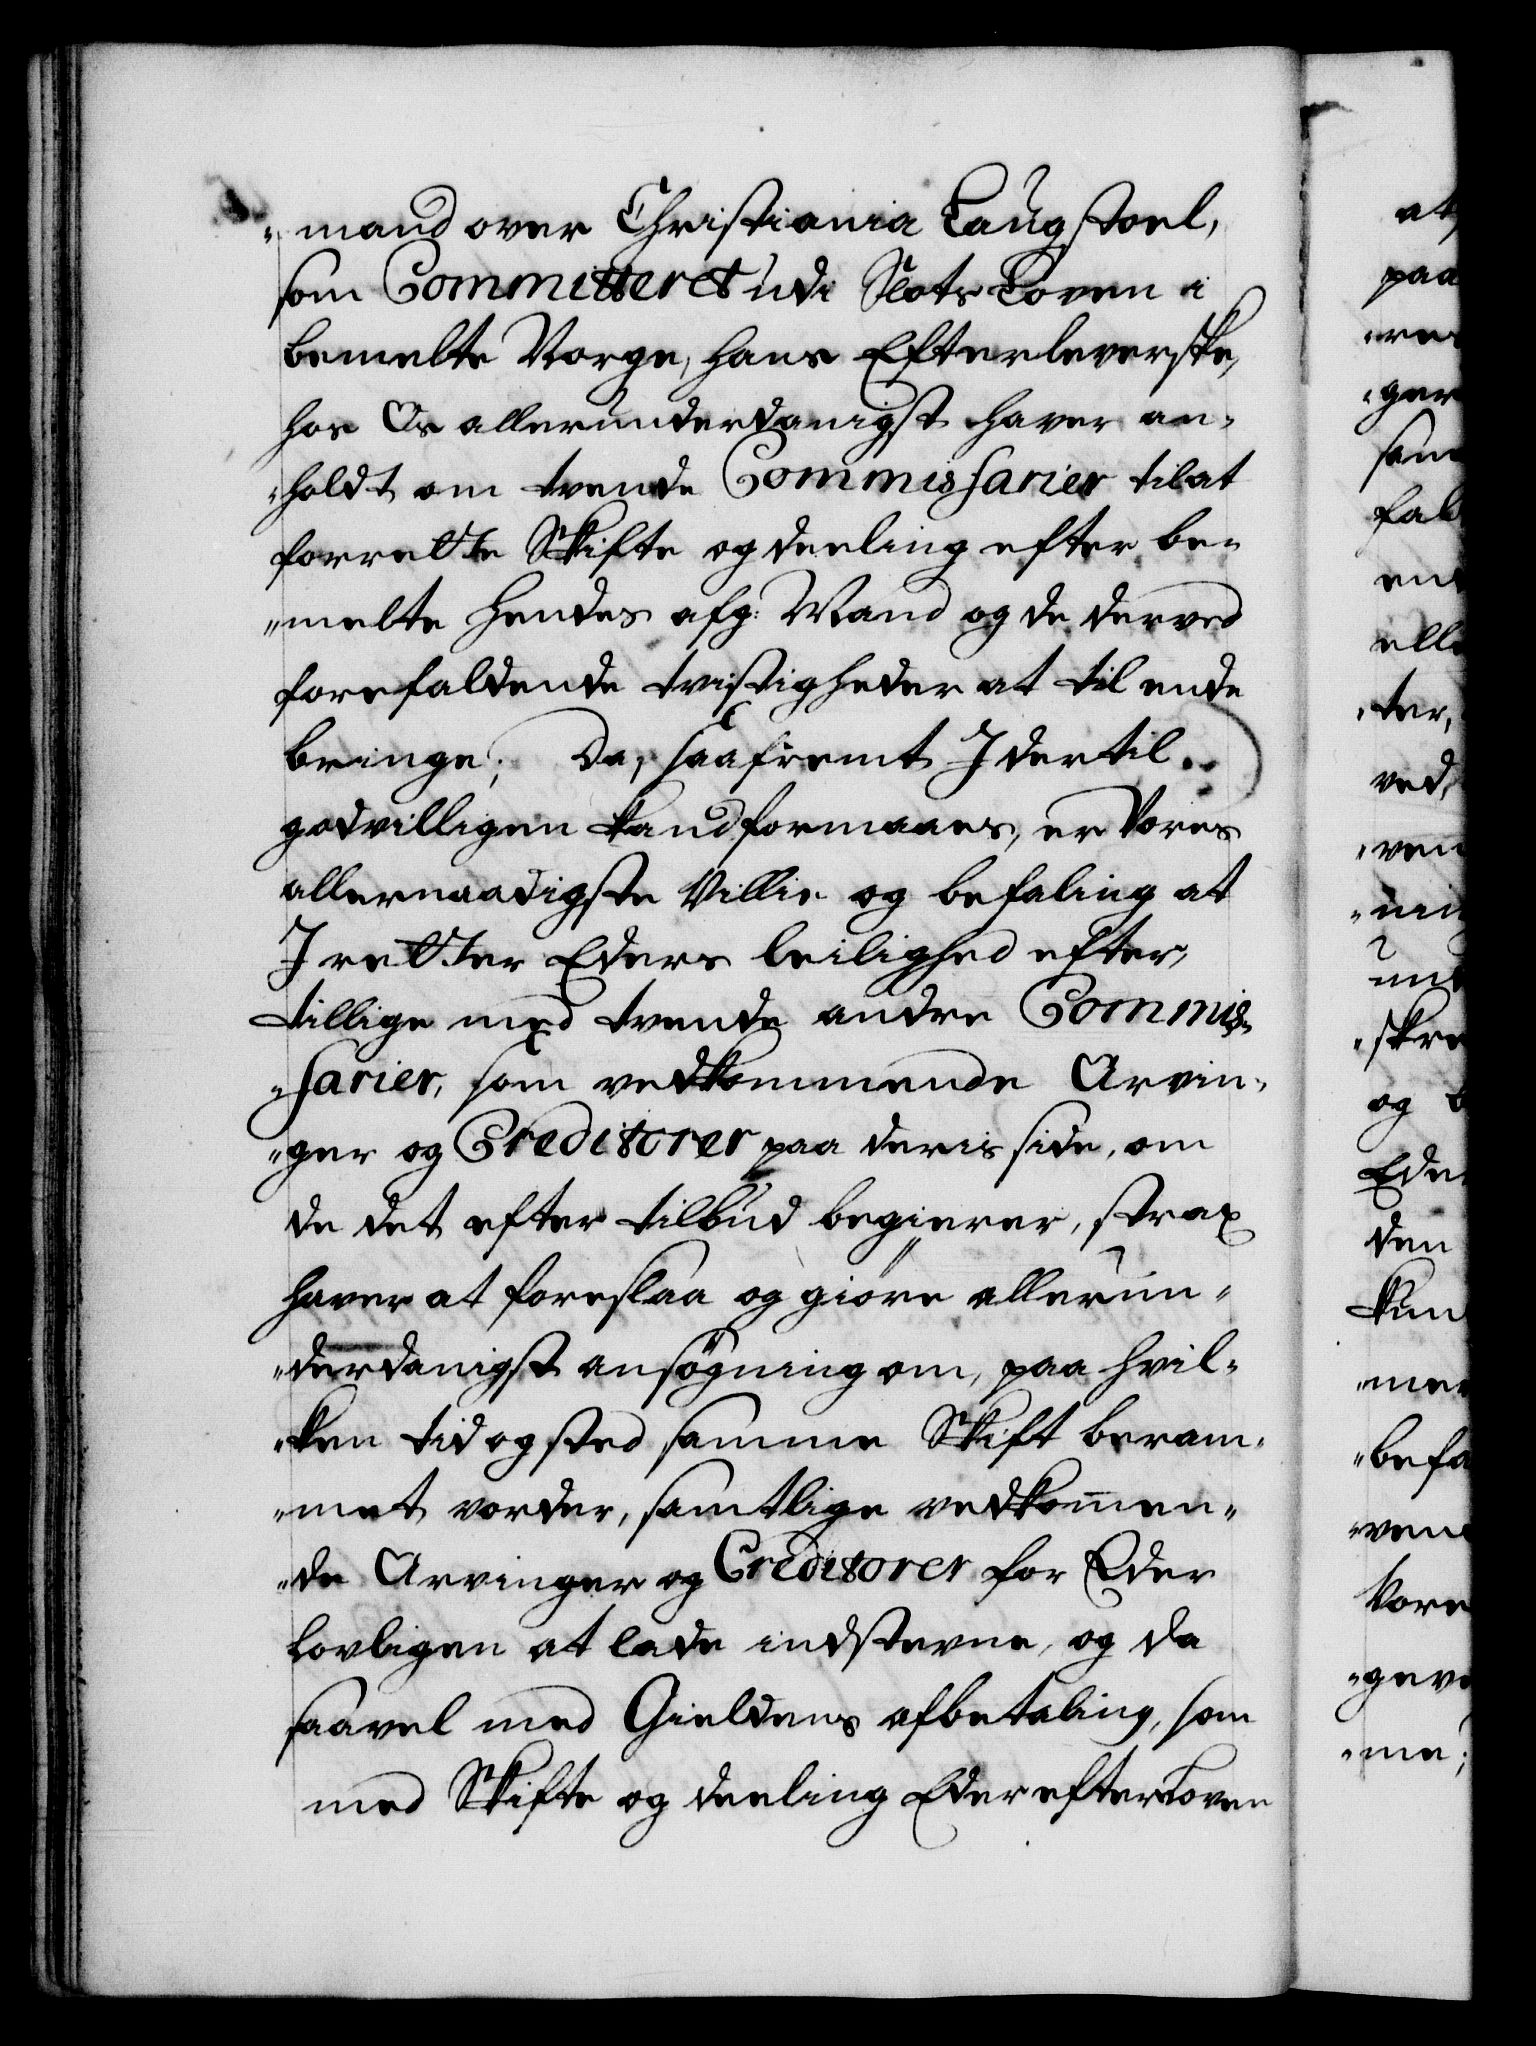 "mand over Christiania Laugstoel,
som Committeret udi Slots Loven i
bemelte Norge, hans Efterleverske,
hos Os allerunderdanigst haver an-
"holdt om tvende Commissarier til at
forrette Skifte og deeling efter be-
"melte hendes afg: Mand og de derved
forefaldende tvistigheder at til ende
bringe; Da, saafremt I dertil
godvilligen kand formaaes, er Vores
allernaadigste Villie og befaling at
I retter Eders leilighed efter,
tillige med tvende andre Commis-
"sarier, som vedkommende Arvin-
"ger og Creditorer paa deris side, om
de det efter tilbud begierer, strax
haver at foreslaa og giöre allerun-
"derdanigst ansögning om, paa hvil-
"ken tid og sted samme Skift beram-
"met vorder, samtlige vedkommen-
"de Arvinger og Creditorer for Eder
lovligen at lade indstevne, og da
saavel med Gieldens afbetaling, som
med Skifte og deeling Eder efter Loven
at
paa
ger
sam
fal
end
elle
"ter,
ved,
"ven
"nin
und
"skre
og b
Ede
den
kun
"mer
"befa
"ven
Vore
"geve
"me;